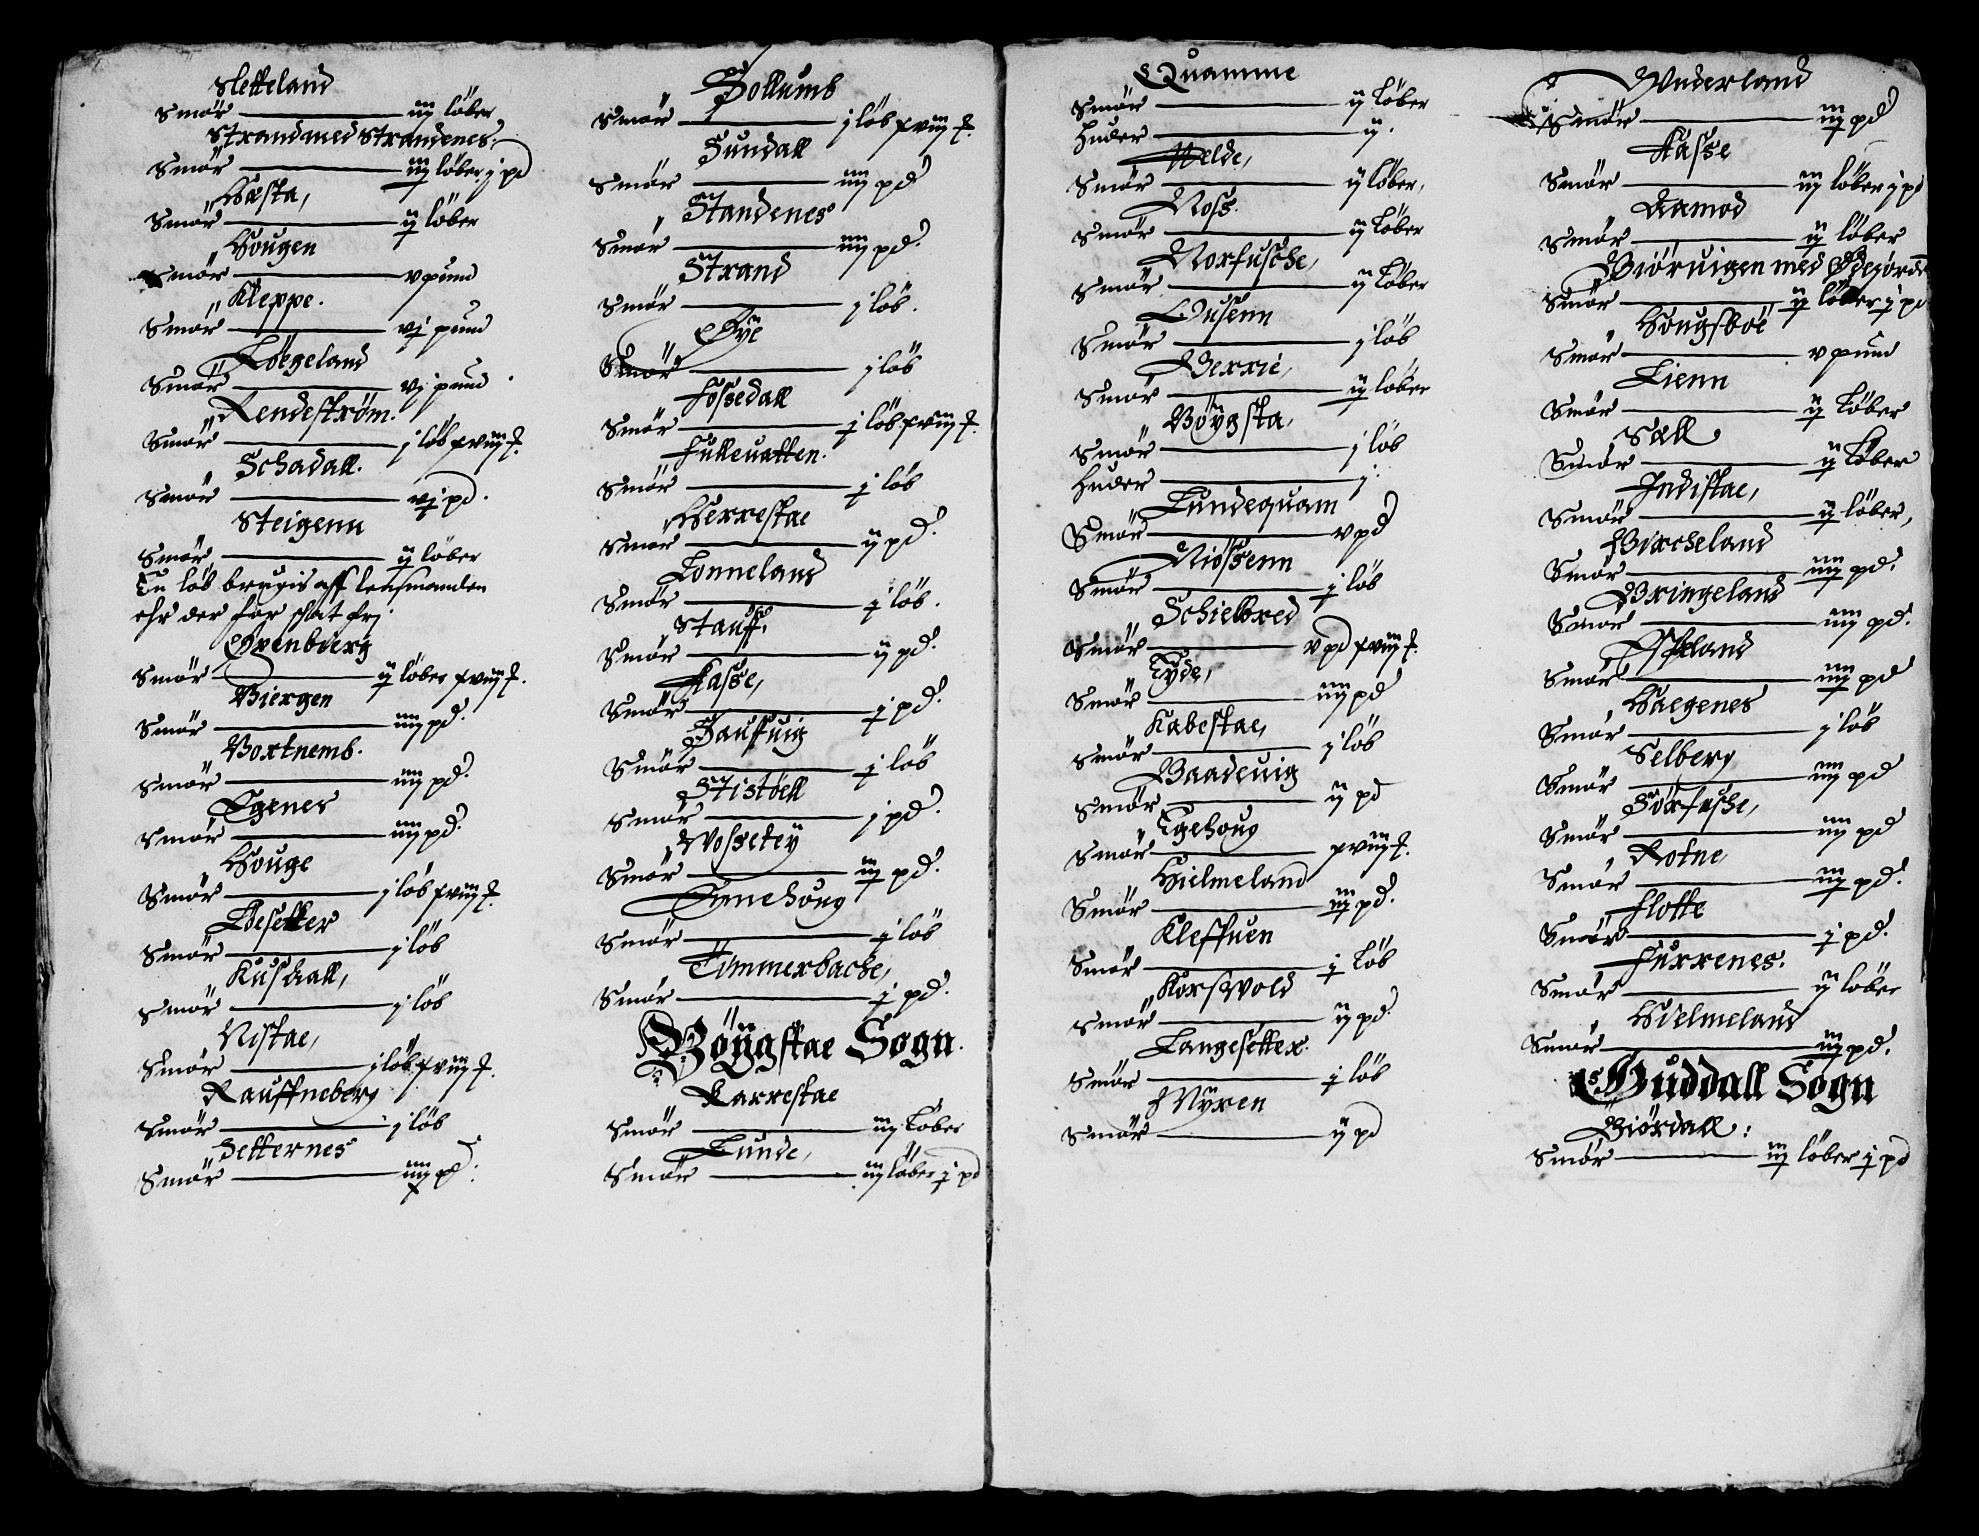 Sletteland
Smör iij löber
Strand med Strandenes.
Smör iij löber j pd
Hæsta,
Smör ij löber
Hougen
Smör v pund
Kleppe.
Smör vj pund
Löegeland
Smör vj pund
Rendeström.
Smör j löb xviij
Schadall.
Smör vj pd.
Steigenn
Smör ij löber
En löb brugis aff lensmanden
ehr der for schat frj
Öxenbierg
Smör ij löber xviij
Biergen
Smör iiij pd.
Bortnemb.
Smör iiij pd.
Egenes
Smör iiij pd.
Houge
Smör j löb xviij
Löesetter
Smör j löb
Kushall,
Smör j löb
Nistae,
Smör j löb xviij
Rauffneberg
Smör j löb
Setternes
Smör iiij pd.
Sollumb
Smör j löb xviij
Sundall
Smör iiij pd
Standenes
Smör iiij pd.
Strand
Smör j löb.
Öye
Smör j löb
Fossedall
Smör j löb xviij
Fulleuatten.
Smör j löb
Herrestae
Smör ij pd.
Lonneland
Smör j löb.
Stauff.
Smör ij pd.
Aasse,
Smör j pd.
Sauffuig
Smör j löb
Stistöell
Smör j pd.
Wossetey
Smör iij pd.
Ennehoug
Smör j löb
Timmerbacke,
Smör j pd.
Böygstae Sogn.
Karrestae
Smör iij Löber
Lunde,
Smör iij löber j pd
Quamme
Smör ij Löber
Huder ij.
Welde,
Smör ij löber,
Noss.
Smör ij Löber
Norfusche,
Smör ij Löber
Ousenn
Smör j löb
Berrie,
Smör ij löber
Böygsta,
Smör j löb
Huder j.
Lundequam
Smör v pd
Niössenn
Smör j löb
Schielbred
Smör v pd xviij
Eyde,
Smör iiij pd
Kabestae,
Smör j löb
Baadeuig
Smör ij pd
Egehoug
Smör xviij
Hielmeland
Smör iij pd.
Kleffuen
Smör j Löb
Korswold
Smör ij pd.
Langesetter.
Smör j löb
Myren
Smör ij pd
Wnderland
Smör iij pd
Aasse
Smör iij löber j pd
Aamod
Smör ij löber
Biöruigen med Ödejorde
Smör ij löber j pd
Hougsboe
Smör v pund
Lienn
Smör ij Löber
Sæll
Smör ij Löber
Indistae,
Smör ij löber,
Bircheland
Smör iiij pd.
Bringeland
Smör iiij pd.
Espeland
Smör iiij pd
Haegenes
Smör j löb
Selberg
Smör iiij pd
Sörfusche,
Smör iiij pd
Rotne,
Smör iij pd.
Flotte
Smör j pd.
Furrenes.
Smör ij löber
Hielmeland
Smör iij pd.
Guddall Sogn
Giördall:
Smör iij löber j pd